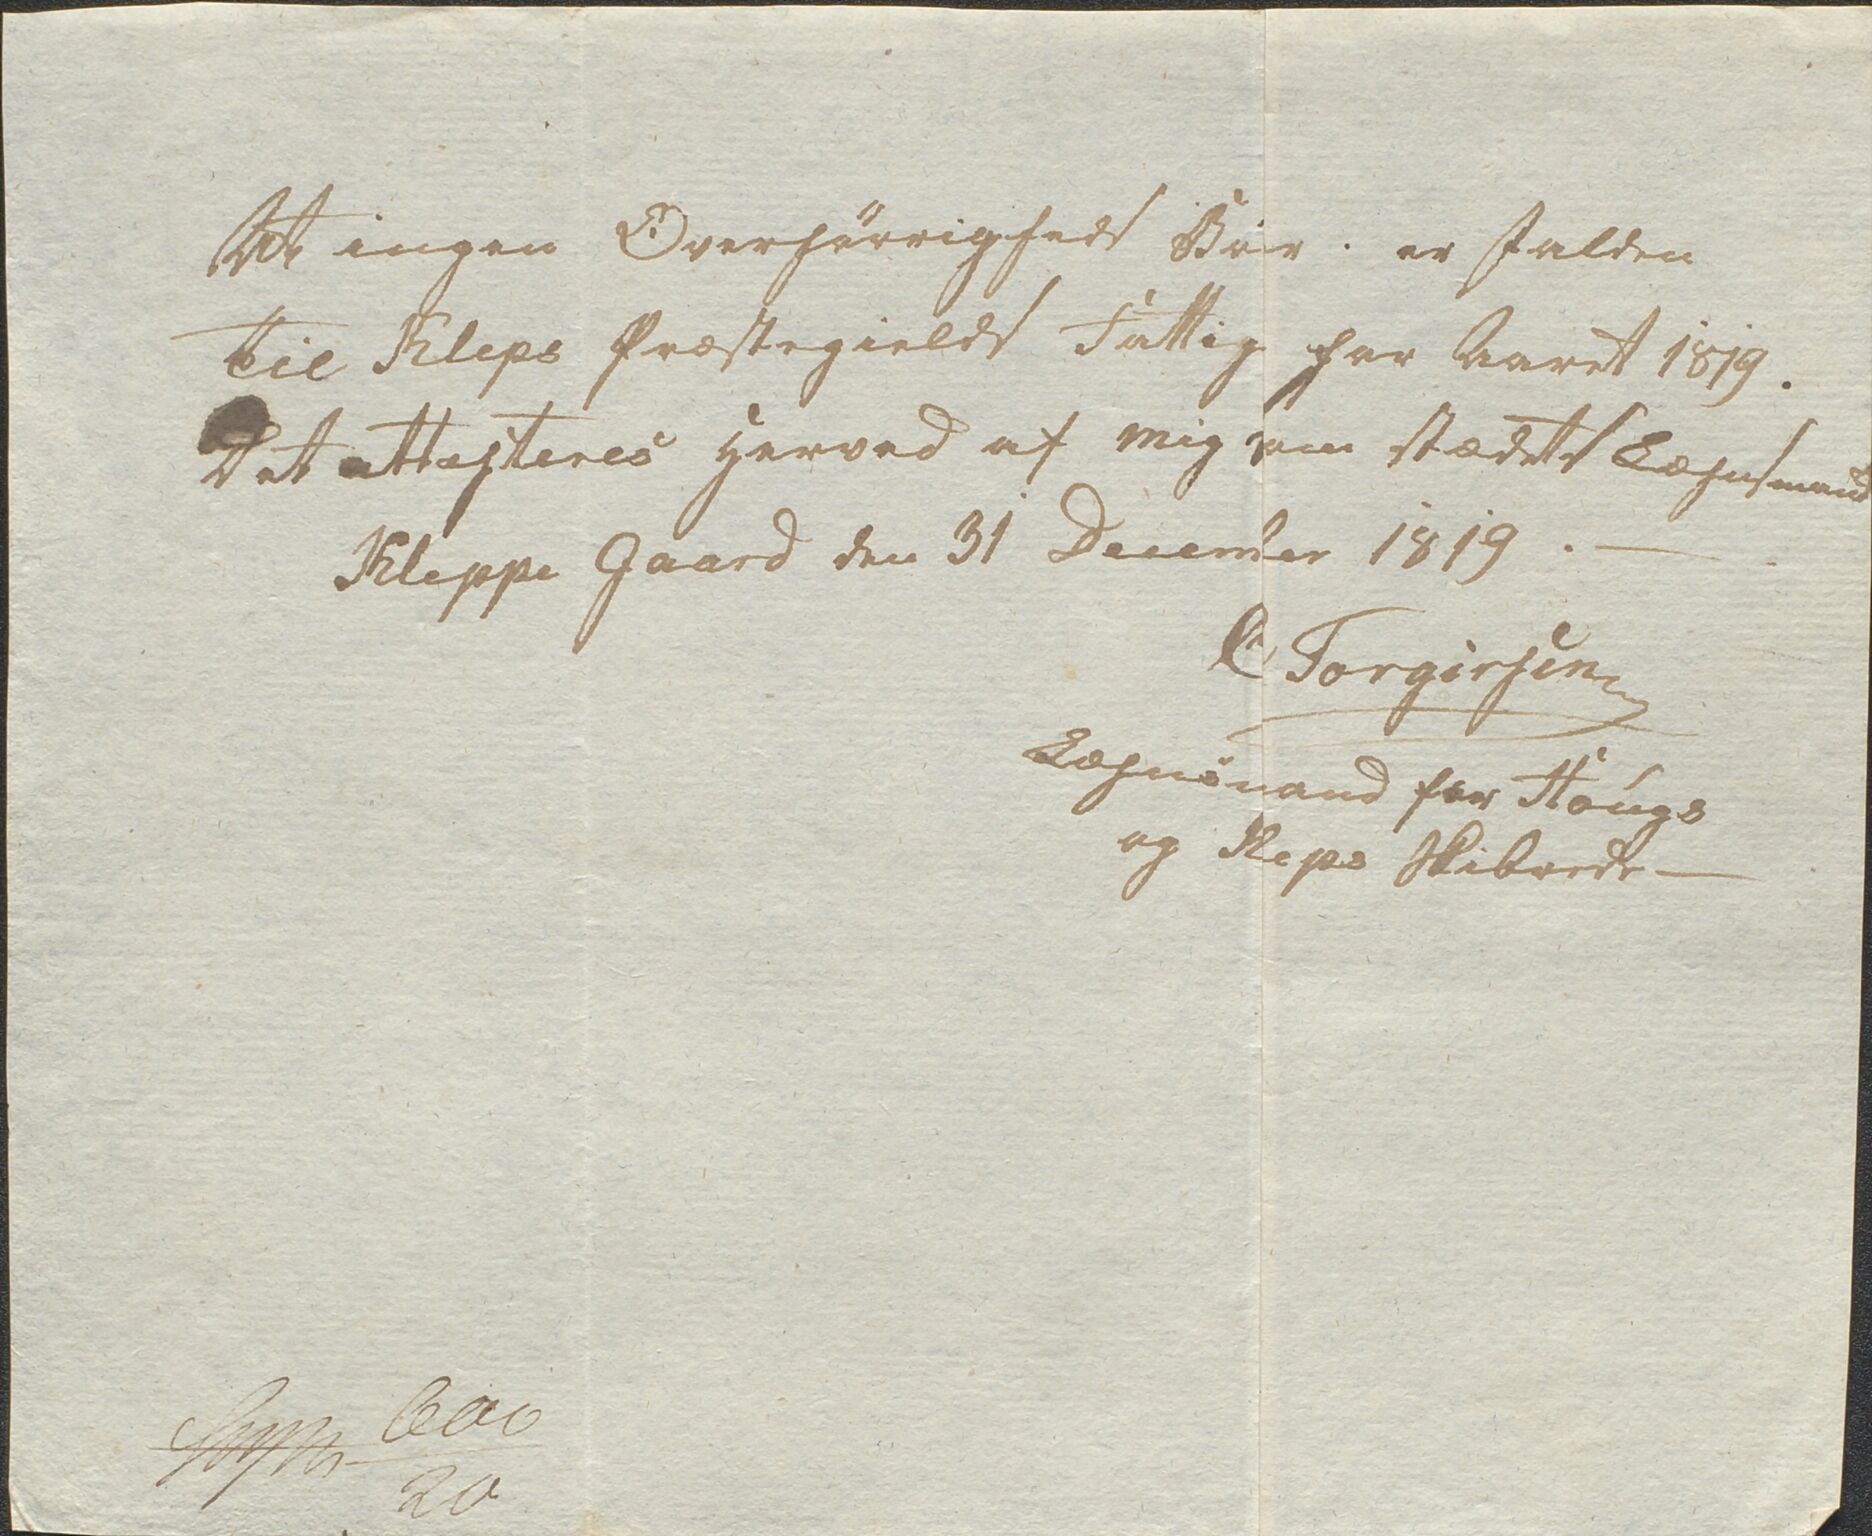 At ingen Overhørrigheds Bør. er falden
til Kleps Præstegields Fattig for Aaret 1819.
Det attesteres herved af mig som stædets Læhnsmand
Kleppe Gaard den 31 December 1819. —
C Torgersen
Læhnsmand for Hougs
og Kleps Skibrede —
20